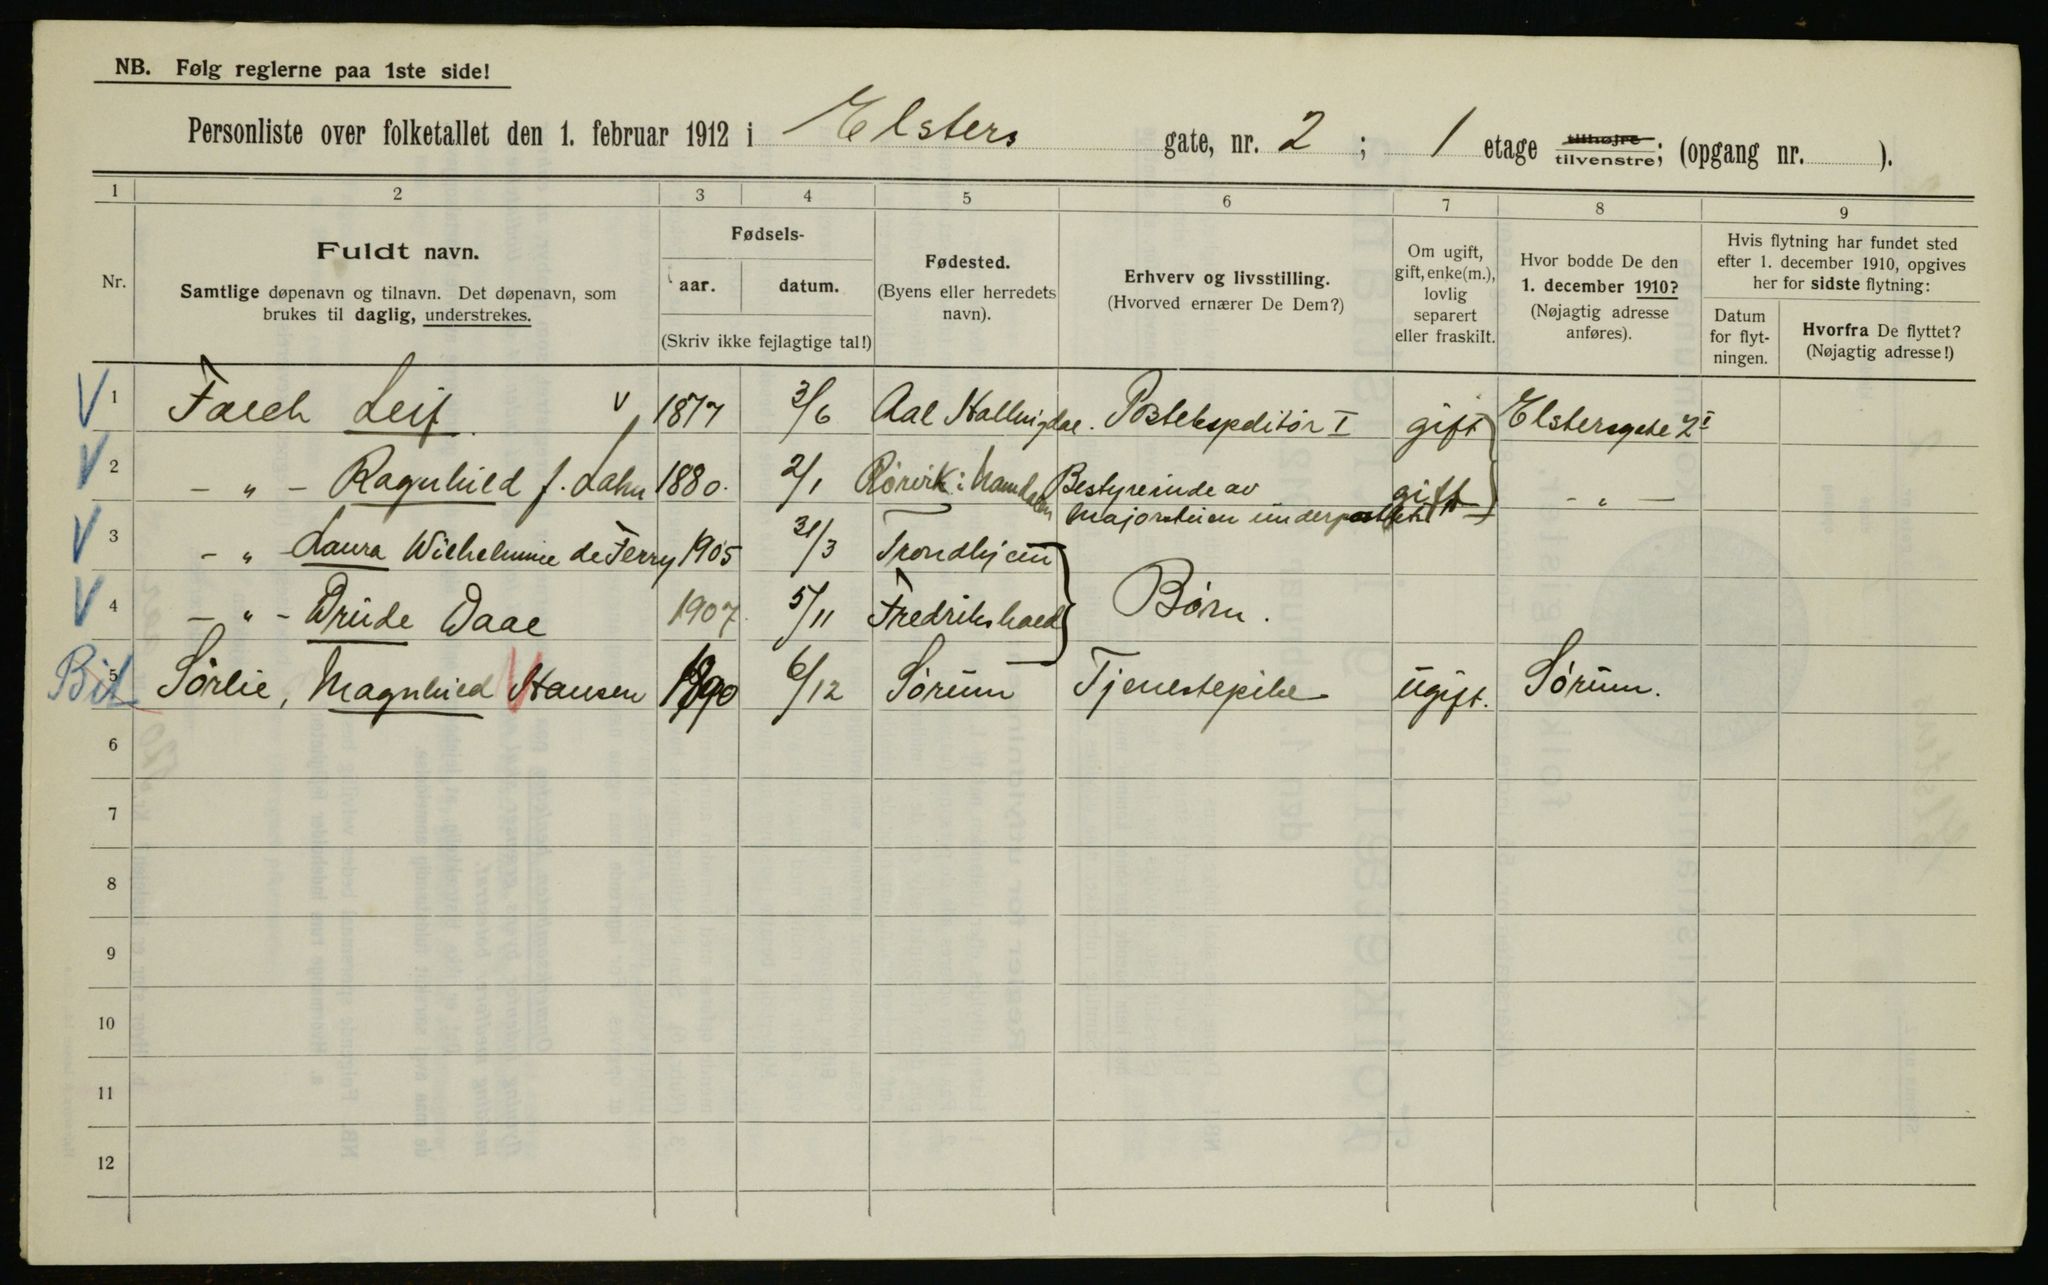 NB. Følg reglerne paa 1ste side!
Personliste over folketallet den 1. februar 1912 i Elsters gate, nr. 2 ; 1 etage tilhøjre tilvenstre; (opgang nr. ).
1 2 3 4 5 6 7 8 9
Nr.
Fuldt navn.
Samtlige døpenavn og tilnavn. Det døpenavn, som
brukes til daglig, understrekes.
Fødsels-
aar. datum.
(Skriv ikke fejlagtige tal!)
Fødested.
(Byens eller herredets
navn).
Erhverv og livsstilling.
(Hvorved ernærer De Dem?)
Om ugift,
gift, enke(m.),
lovlig
separert
eller fraskilt.
Hvor bodde De den
1. december 1910?
(Nøjagtig adresse
anføres).
Hvis flytning har fundet sted
efter 1. december 1910, opgives
her for sidste flytning:
Datum
for flyt-
ningen.
Hvorfra De flyttet?
(Nøjagtig adresse!)
V 1 Falch Leif v 1877 3/6 Aal Hallingdal. Postekspeditør I gift Elstersgate 2 I
V 2 — " — Ragnhild f. Lahn 1880. 2/1 Rørvik i Namdalen Bestyrerinde av
Majorstuen underpostkt gift — " —
V 3 — " Laura Wilhelmine de Ferry 1905 31/3 Trondhjem
V 4 — " — Drude Daae 1907. 5/11 Fredrikshald Børn.
Bil 5 Sørlie, Magnhild Hansen 1890 6/12 Sørum Tjenestepike ugift. Sørum.
6
7
8
9
10
11
12